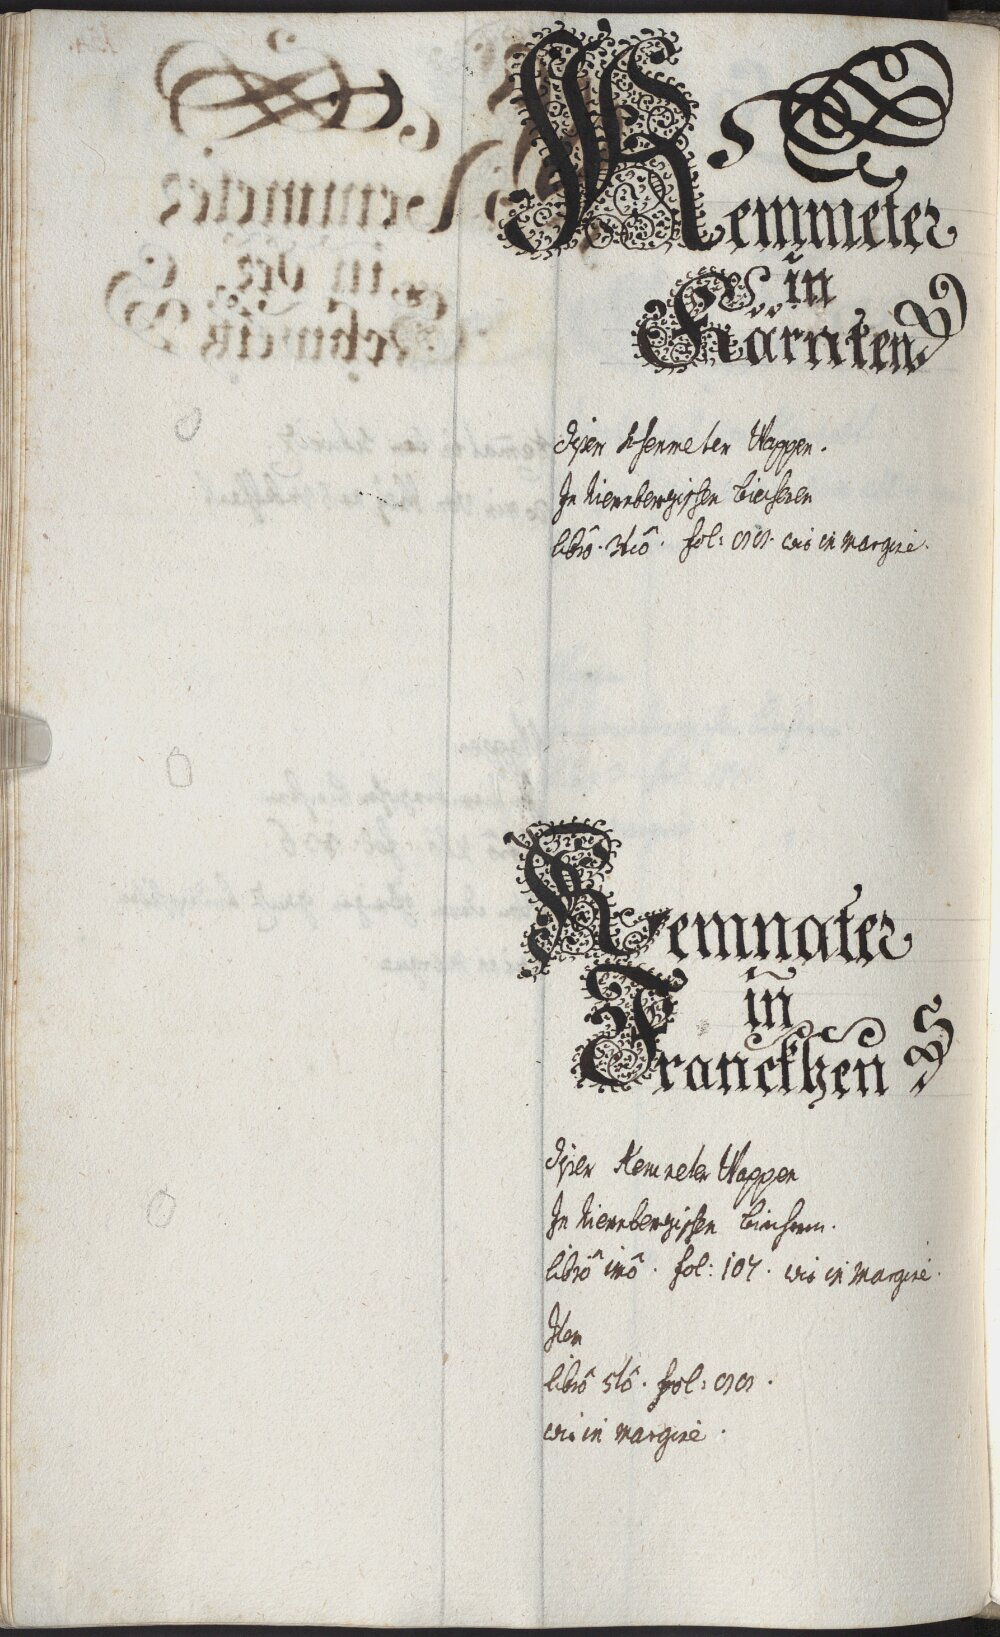 Kemmeter
in
Kärnten
Diser Khenmeter Wappen.
In Niernbergischen Biechern
librô. 3tiô. fol: 
wie in margine.
Kemnater
in
Franckhen
Diser Kemneter Wappen
In Niernbergischen Biechern.
librô imô. fol: 107. wie in margine.
Item
librô 5tô. fol:
wie in margine.